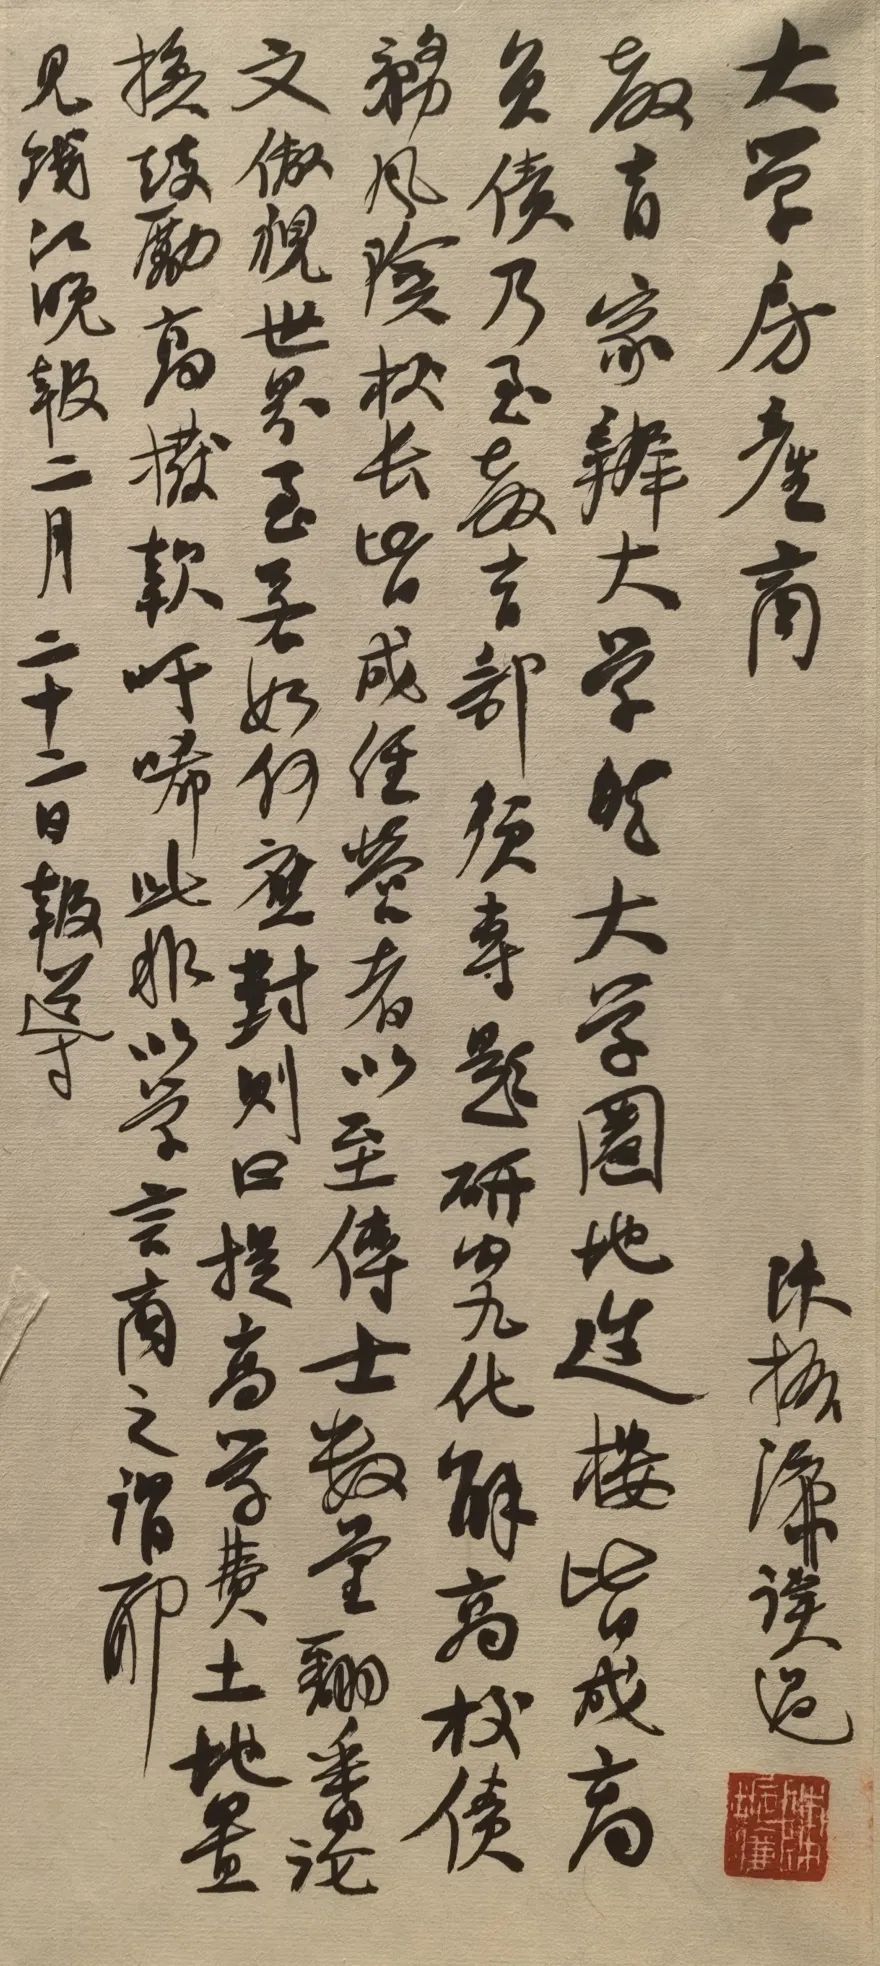 大学房產商
陈振濂读过
教育家辦大学然大学圈地造楼皆成高
负债乃至教育部须专题研究化解高校债
務风险校长皆成经营者以至博士数量翻番论
文傲视世界至若如何应對则曰提高学费土地置
换鼓勵高撥款吁唏此非以学言商之谓耶
见钱江晚報二月二十二日報導